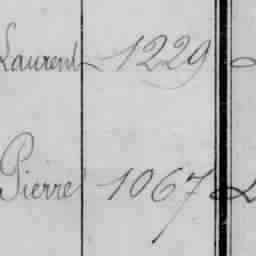 Laurent 1229
Pierre 1067